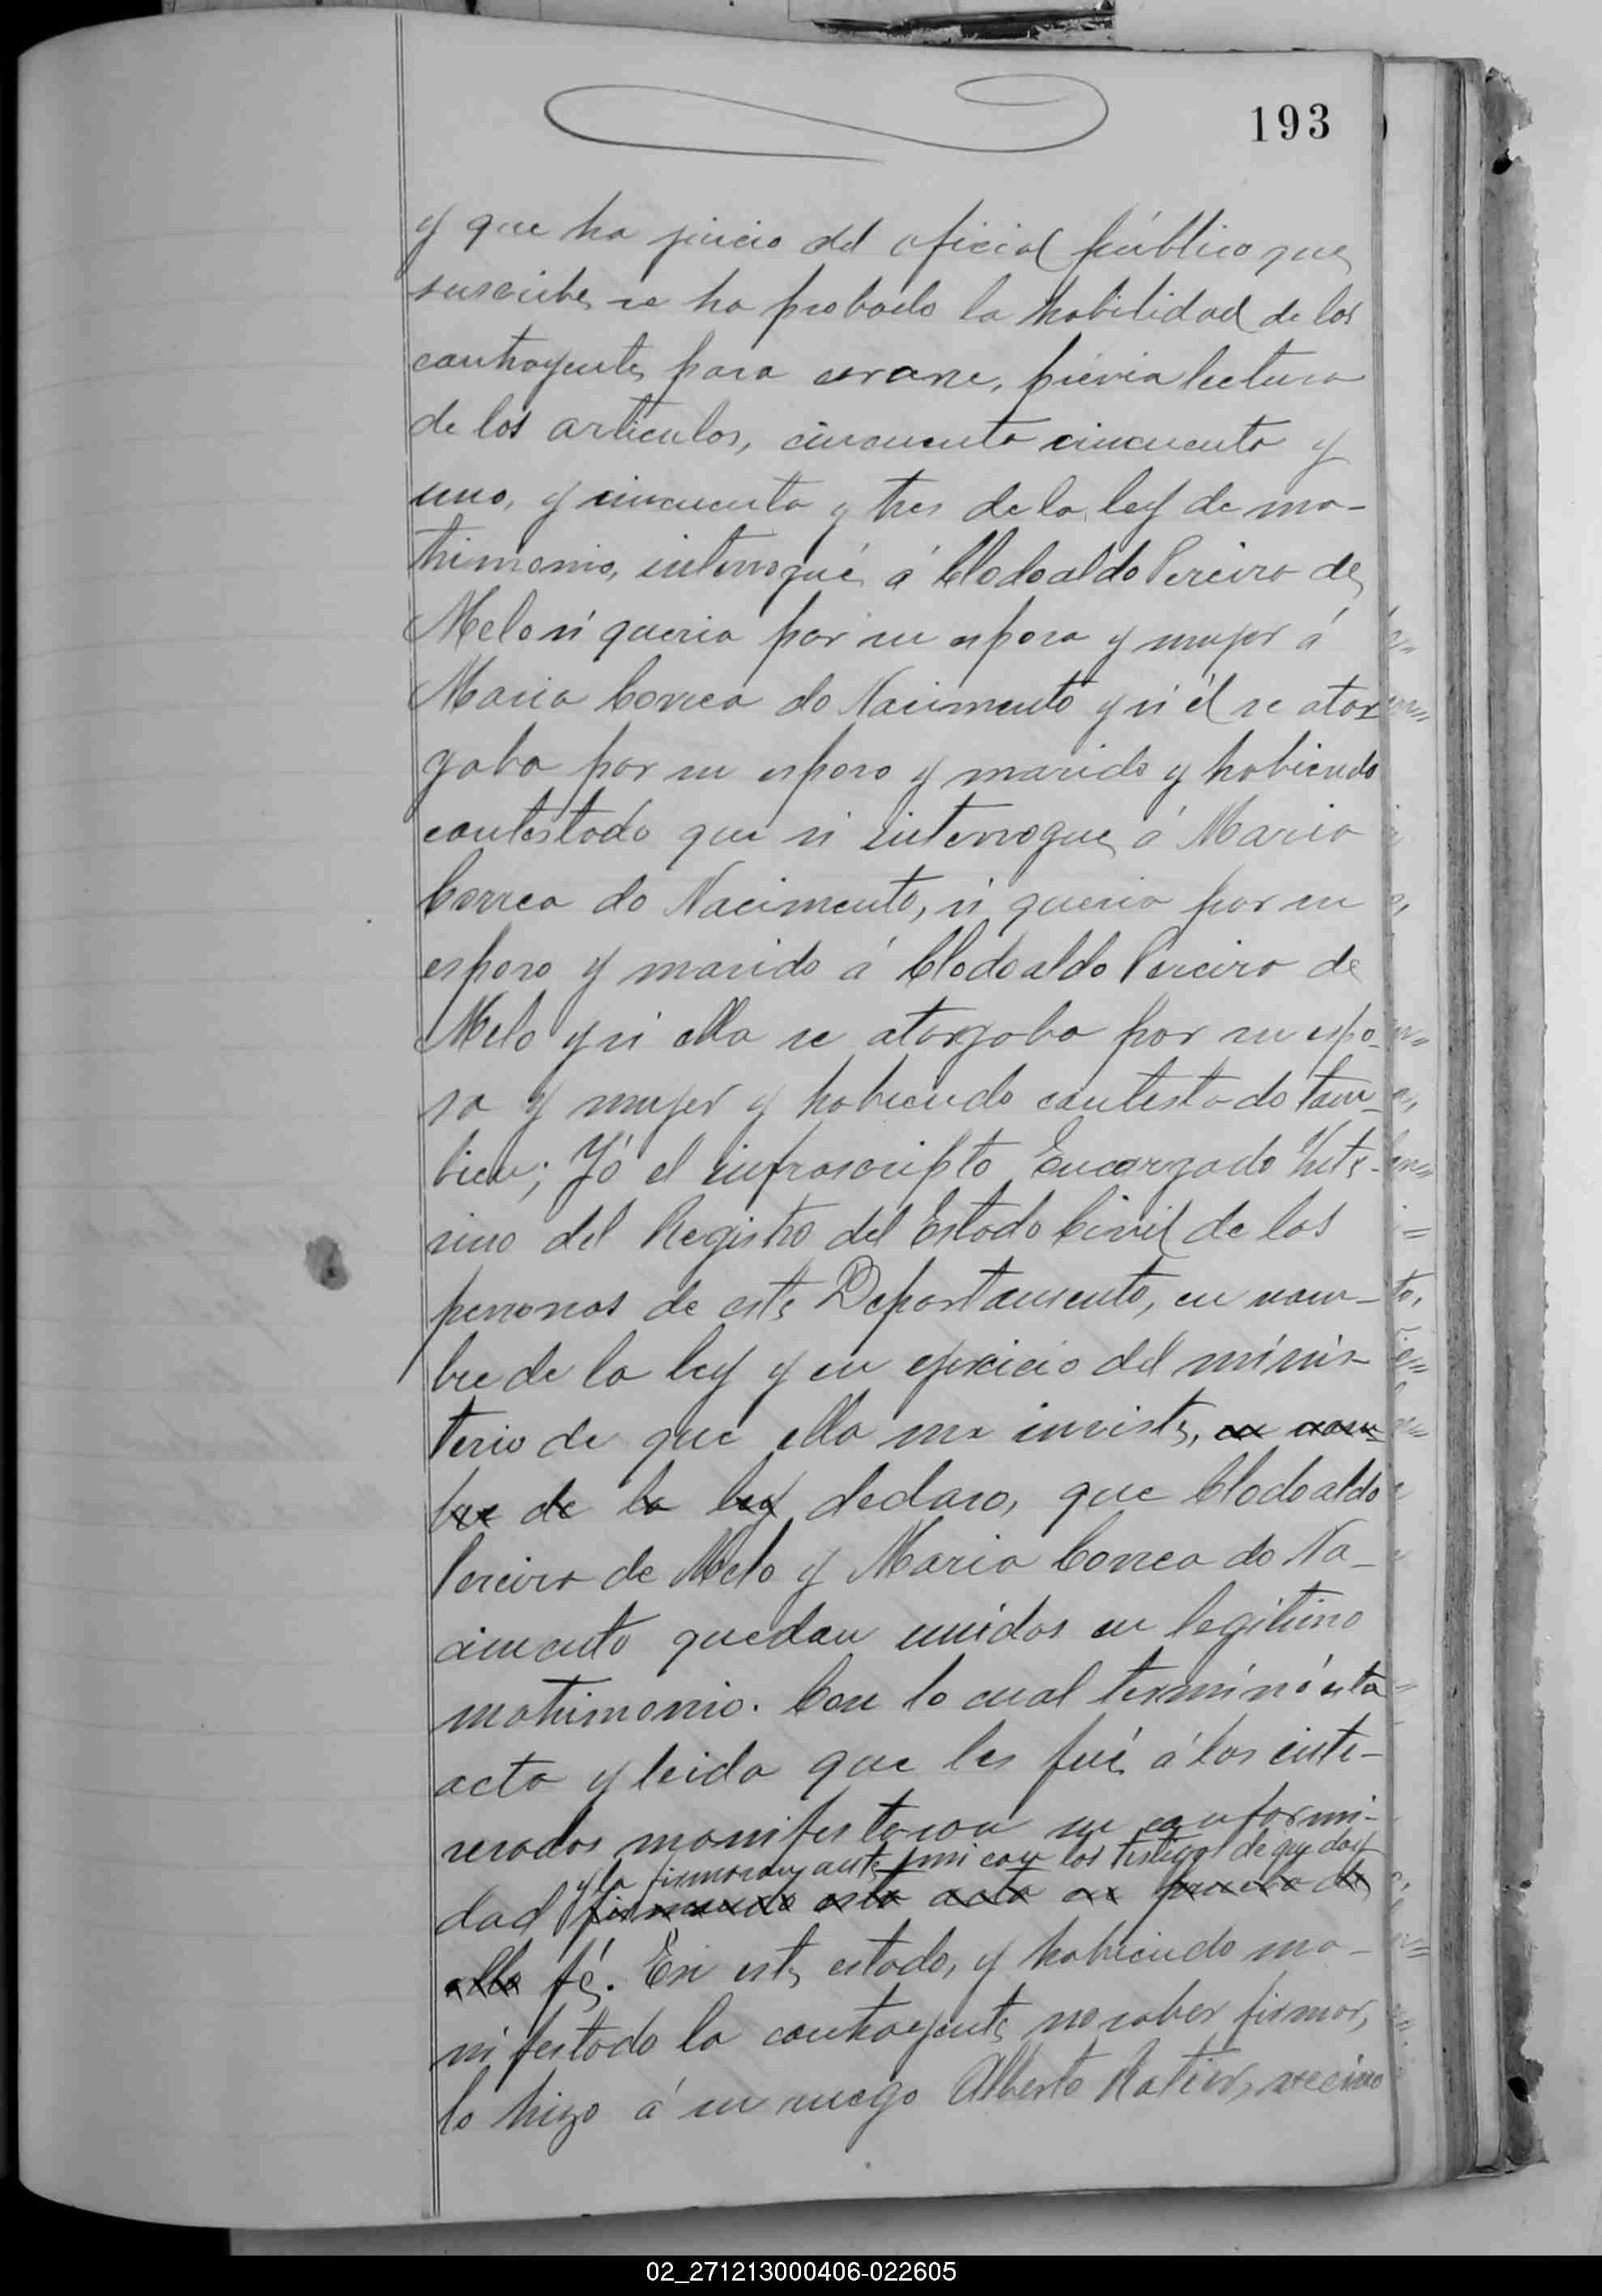 193
y que ha juicio del oficial público que
suscribe se ha probado la habilidad de los
contrayentes para casarse, prévia lectura
de los artículos, cincuenta cincuenta y
uno, y cincuenta y tres de la ley de ma-
trimonio, interrogué á Clodoaldo Pereira de
Melo si queria por su esposa y mujer á
Maria Correa do Nacimento y si él se otor
gaba por su esposo y marido y habiendo
contestado que si interrogue á Maria
Correa do Nacimento, si queria por su
esposo y marido á Clodoaldo Pereira de
Melo y si ella se otorgaba por su espo-
sa y mujer y habiendo contestado tam-
bien; Yó el infrascripto Encargado Inte-
rino del Registro del Estado Civil de las
personas de este Departamento, en nom-
bre de la ley y en ejercicio del minis-
terio de que ella me inviste, en nom-
bre de la ley declaro, que Clodoaldo
Pereira de Melo y Maria Correa do Na-
cimento quedan unidos en legitimo
matrimonio. Con lo cual terminó esta
acta y leida que les fué á los inte-
resados manifestaron su conformi-
y la firmaron ante mi con los testigos de que doy
dad firmando esta acta en prueba de
ello fé. En este estado, y habiendo ma-
nifestado la contrayente no saber firmar,
lo hizo á su ruego Alberto Ratier, vecino
02_271213000406-022605